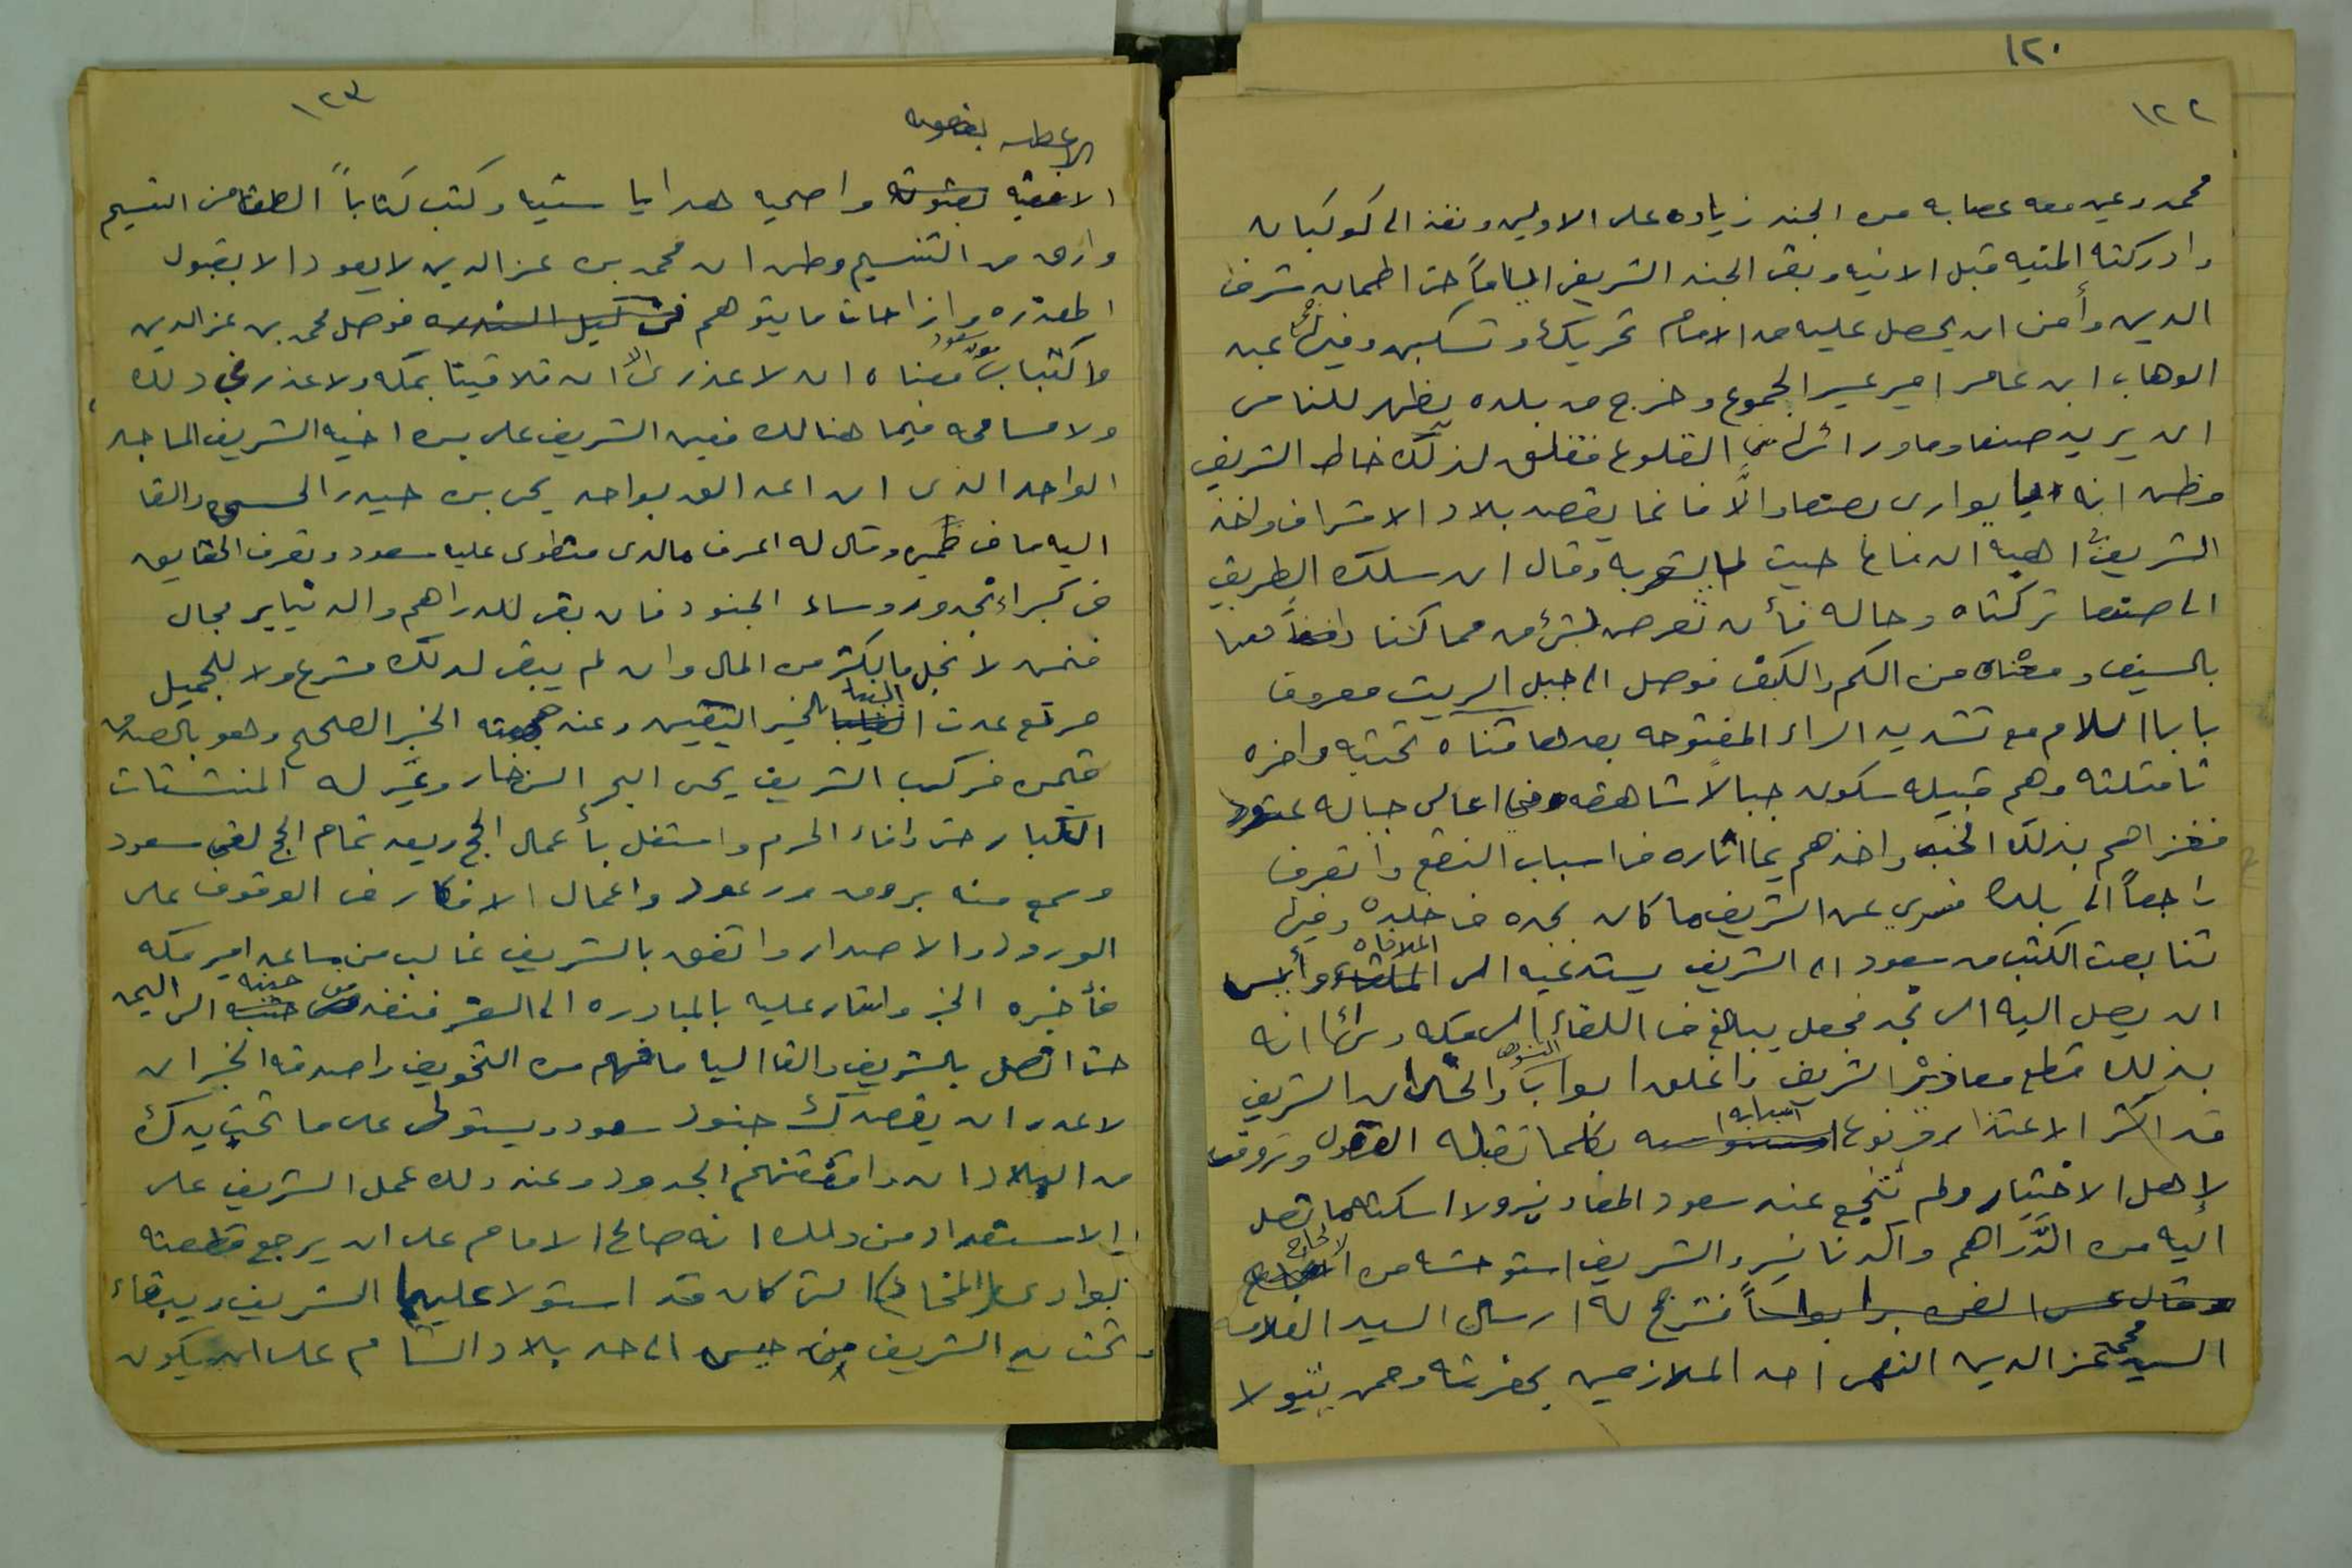 ١٢٠
١٢٢
محمد وعين معه عصابه من الجند زياده على الاولين ونفذ الى كوكبان
وادركته المنيه قبل الامنيه وبقى الجند الشريفي اياماً حتى اطمأن شرف
الدين وأمن ان يحصل عليه من الامام تحريك وتسكين وفيها عبد
الوهاب ابن عامر امير عسير الجموع وخرج من بلده يظهر للناس
ان يريد صنعا وما ورائها من القلوع فقلق لذلك خاطر الشريف
وظن انه يوارى بصنعا والّا فانما يقصد بلاد الاشراف واخذ
الشريف اهبة الدفاع حيث وقال ان سلك الطريق
الى صنعا تركناه وحاله فأن تعرض لشئ من ممالكنا دافعنا
بالسيف ومنعناه من الكم والكيف فوصل الى جبل الريث معروف
بابا اللام مع تشديد الراء المفتوحه بعدها مثناه تحتيه واخره
ثا مثلثه وهم قبيله سكون جبالاً شاهقه وفي اعالى جباله
فغزاهم بذلك واخذهم بما اثاره من اسباب النقع وانصرف
راجعاً الى بلده فسري عن الشريف ما كان يجده في خلده وفيها
تتابعت الكتب من سعود الى الشريف يستدعيه الى الملاقاه وأيس
ان يصل اليه الى نجد فجعل يبالغ في اللقاء الى مكه ورأى انه
بذلك قطع معاذير الشريف واغلق ابواب والحال ان الشريف
قد اكثر الاعتذار ونوع اسبابه بكلما تقبله العقول
لاهل الاختيار ولم تنجع عند سعود المعاذير ولا اسكته ما تصل
اليه من الدراهم والدنانير والشريف استوحشه من الالحاح
فترجح له ارسال السيد العلامه
السيد محمد عز الدين النعمى احد الملازمين بحضرته وممن يتولا
١٢٣
واصحبه هدايا سنيه وكتب كتاباً الطف من النسيم
وارق من التنسيم وظن ان محمد بن عز الدين لا يعود الا بقبول
المعذره وازاحات ما يتوهم فوصل محمد بن عز الدين
واكتباب من سعود معناه ان لا عذر الا ان تلاقينا بمكه ولا عذر في ذلك
ولا مسامحه فيما هنالك فعين الشريف على بن اخيه الشريف الماجد
الواحد الذى ان اعد الف بواحد يحى بن حيدر الحسنى والقا
اليه ما في ضميره وقال له اعرف مالذى منطوى عليه سعود وتعرف الحقايق
من كبراء نجد وروساء الجنود فان بقى للدراهم والدنانير مجال
فنحن لا نبخل مايكثر من المال وان لم يبقى لذلك مشرع ولا للجميل
مرتع عدت الينا بالخبر اليقين وعند جهينه الخبر الصحيح وهو بالصدق
قمن فركب الشريف يحى البحر الزخار وعبر له المنشئات
الكبار حتى وافاء الحرم واشتغل بأعمال الحج وبعد تمام الحج لقى سعود
وسمع منه بروق ورعود واعمال الافكار في الوقوف على
الورود والاصدار واتفق بالشريف غالب بن مساعد امير مكه
فأخبره الخبر واشار عليه بالمبادره الى السفر فنفذ من حينه الى اليمن
حتى اتصل بالشريف والقا اليه ما فهم من التخويف واصدقه الخبر ان
لا عذر ان يقصدك جنود سعود ويستولى على ما تحت يدك
من البلاد ان وامكنتهم الجدود وعند ذلك عمل الشريف على
الاستعداد من ذلك انه صالح الامام على ان يرجع قطعته
بوادى المخا التى كان قد استولا عليها الشريف ويبقاء
تحت يد الشريف من حيس الى حد بلاد الشام على ان يكون